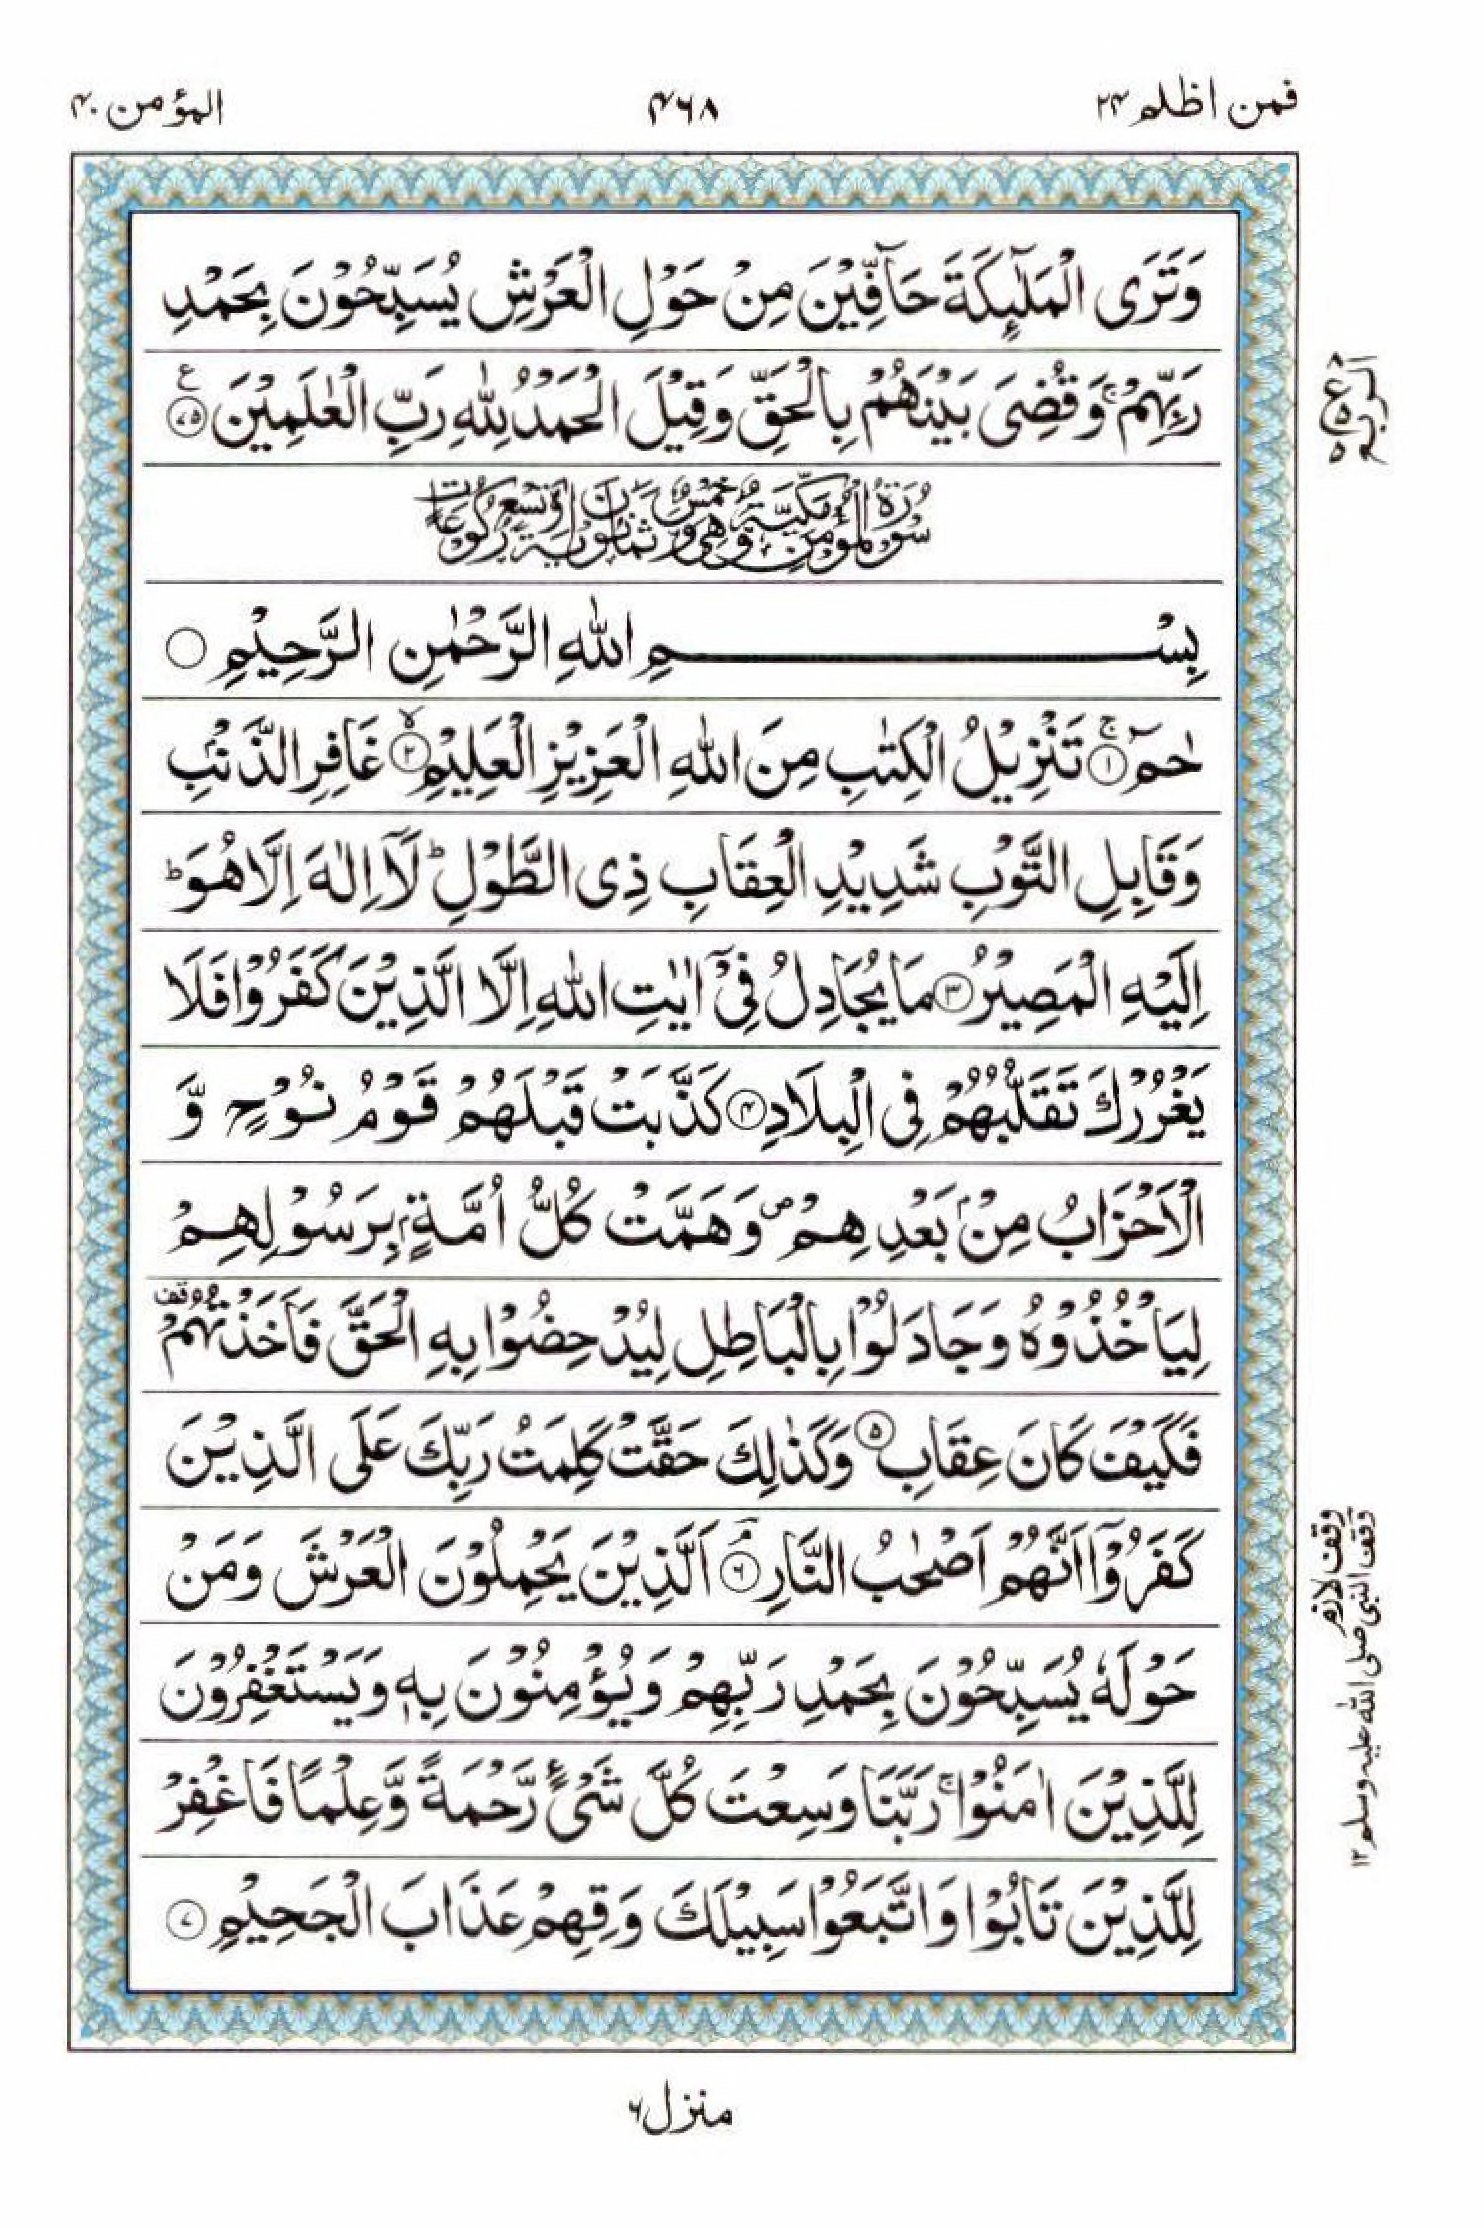 فمن اظلم ۲۴
۴۶۸
المؤمن ۴۰
وَتَرَى الْمَلٰٓئِكَةَ حَآفِّيْنَ مِنْ حَوْلِ الْعَرْشِ يُسَبِّحُوْنَ بِحَمْدِ
رَبِّهِمْ ۚ وَقُضِىَ بَيْنَهُمْ بِالْحَقِّ وَقِيْلَ الْحَمْدُ لِلّٰهِ رَبِّ الْعٰلَمِيْنَ ۟ع ﴿۷۵﴾
سُوْرَةُ الْمُؤْمِنِ مَكِّيَّةٌ وَّهِىَ خَمْسٌ وَّثَمَانُوْنَ اٰيَةً وَّتِسْعُ رُكُوْعَاتٍ
بِسْـــــــــمِ اللّٰهِ الرَّحْمٰنِ الرَّحِيْمِ ○
حٰمٓ ۚ ﴿۱﴾ تَنْزِيْلُ الْكِتٰبِ مِنَ اللّٰهِ الْعَزِيْزِ الْعَلِيْمِ ۙ ﴿۲﴾ غَافِرِ الذَّنْۢبِ
وَقَابِلِ التَّوْبِ شَدِيْدِ الْعِقَابِ ذِى الطَّوْلِ ؕ لَآ اِلٰهَ اِلَّا هُوَ ؕ
اِلَيْهِ الْمَصِيْرُ ﴿۳﴾ مَا يُجَادِلُ فِىْٓ اٰيٰتِ اللّٰهِ اِلَّا الَّذِيْنَ كَفَرُوْا فَلَا
يَغْرُرْكَ تَقَلُّبُهُمْ فِى الْبِلَادِ ﴿۴﴾ كَذَّبَتْ قَبْلَهُمْ قَوْمُ نُوْحٍ وَّ
الْاَحْزَابُ مِنْۢ بَعْدِهِمْ ۪ وَهَمَّتْ كُلُّ اُمَّةٍۭ بِرَسُوْلِهِمْ
لِيَاْخُذُوْهُ وَجَادَلُوْا بِالْبَاطِلِ لِيُدْحِضُوْا بِهِ الْحَقَّ فَاَخَذْتُهُمْ قف
فَكَيْفَ كَانَ عِقَابِ ﴿۵﴾ وَكَذٰلِكَ حَقَّتْ كَلِمَتُ رَبِّكَ عَلَى الَّذِيْنَ
كَفَرُوْٓا اَنَّهُمْ اَصْحٰبُ النَّارِ ۘ ﴿۶﴾ اَلَّذِيْنَ يَحْمِلُوْنَ الْعَرْشَ وَمَنْ
حَوْلَهٗ يُسَبِّحُوْنَ بِحَمْدِ رَبِّهِمْ وَيُؤْمِنُوْنَ بِهٖ وَيَسْتَغْفِرُوْنَ
لِلَّذِيْنَ اٰمَنُوْا ۚ رَبَّنَا وَسِعْتَ كُلَّ شَىْءٍ رَّحْمَةً وَّعِلْمًا فَاغْفِرْ
لِلَّذِيْنَ تَابُوْا وَاتَّبَعُوْا سَبِيْلَكَ وَقِهِمْ عَذَابَ الْجَحِيْمِ ﴿۷﴾
الربع
۸ ع ۵ ۵
وقف لازم
وقف النبی صلی اللہ علیہ وسلم ۱۲
منزل ۶